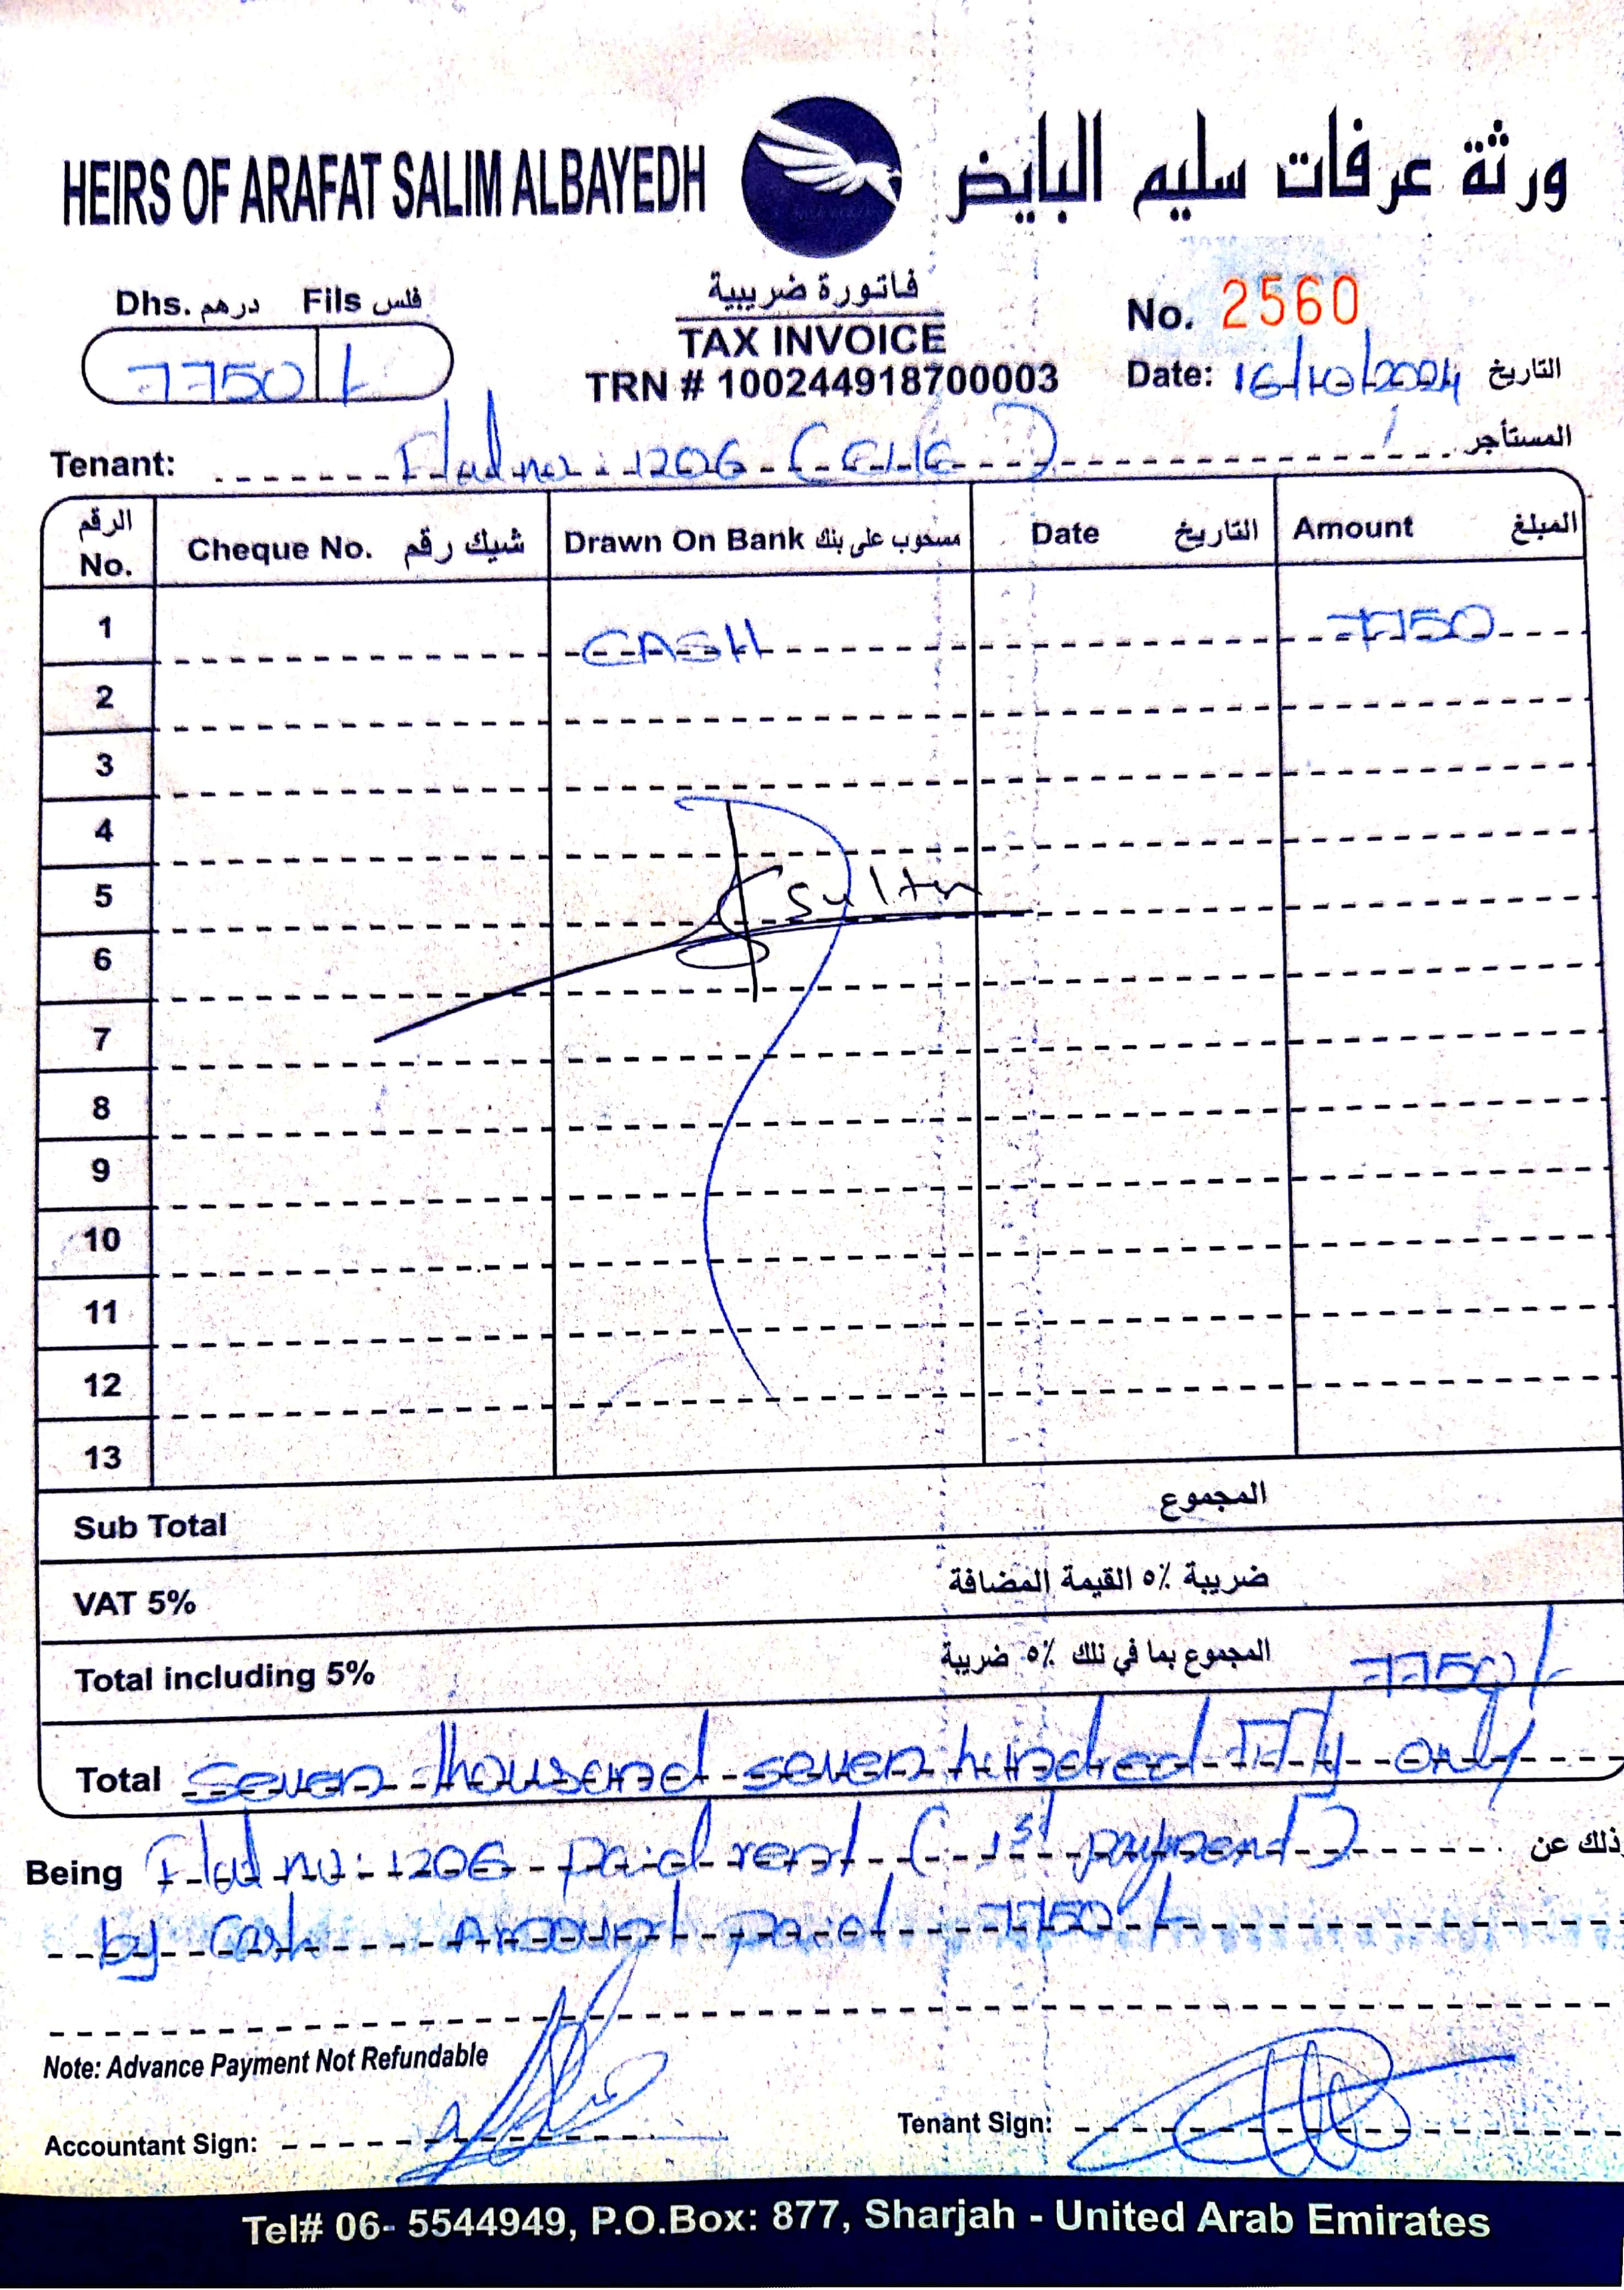 HEIRS OF ARAFAT SALIM ALBAYEDH ورثة عرفات سليم البايض
Dhs. درهم Fils فلس
7750 /-
فاتورة ضريبية
TAX INVOICE
TRN # 100244918700003
No. 2560
Date: 16/10/2024 التاريخ
Tenant: Flat no: 1206 المستأجر
الرقم No. Cheque No. شيك رقم Drawn On Bank مسحوب على بنك Date التاريخ Amount المبلغ
1 CASH 7750
2
3
4
5 Sultan
6
7
8
9
10
11
12
13
Sub Total المجموع
VAT 5% ضريبة ٥٪ القيمة المضافة
Total including 5% المجموع بما في ذلك ٥٪ ضريبة 7750/-
Total Seven thousand seven hundred Fifty only
Being Flat no: 1206 paid rent (1st payment) ذلك عن
by Cash Amount paid 7750/-
Note: Advance Payment Not Refundable
Accountant Sign: Tenant Sign:
Tel# 06- 5544949, P.O.Box: 877, Sharjah - United Arab Emirates